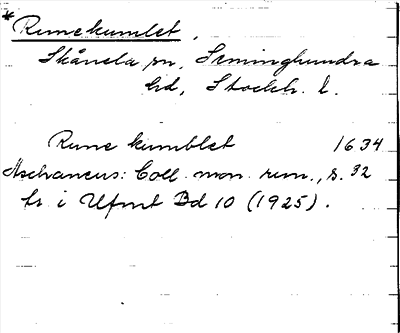 * Runekumlet.
Skånela sn, Seminghundra
hd, Stockh. l.
Rune kumblet 1634
Aschaneus: Coll. mon. run., s. 32
tr. i Ufmt Bd 10 (1925).